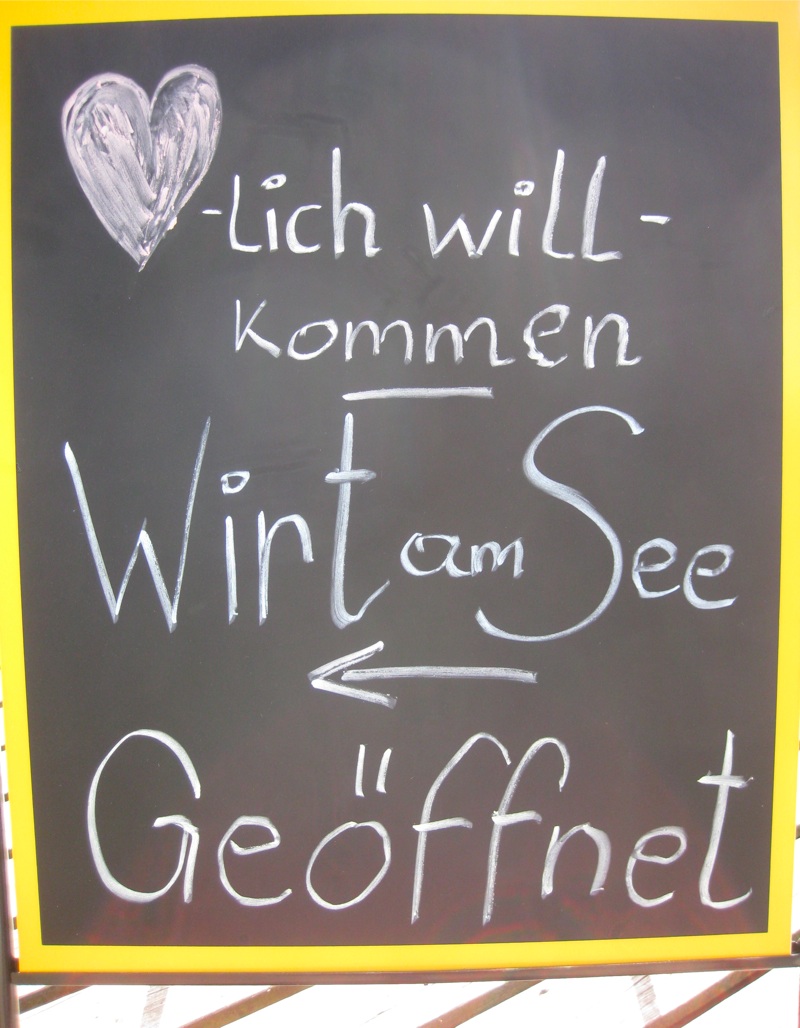 -lich will-
kommen
Wirt am See
Geöffnet